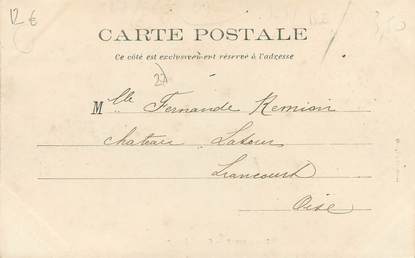 12 €
CARTE POSTALE
Ce côté est exclusivement réservé à l'adresse
27
Mlle Fernande Remion
chateau Latour
Liancourt
Oise